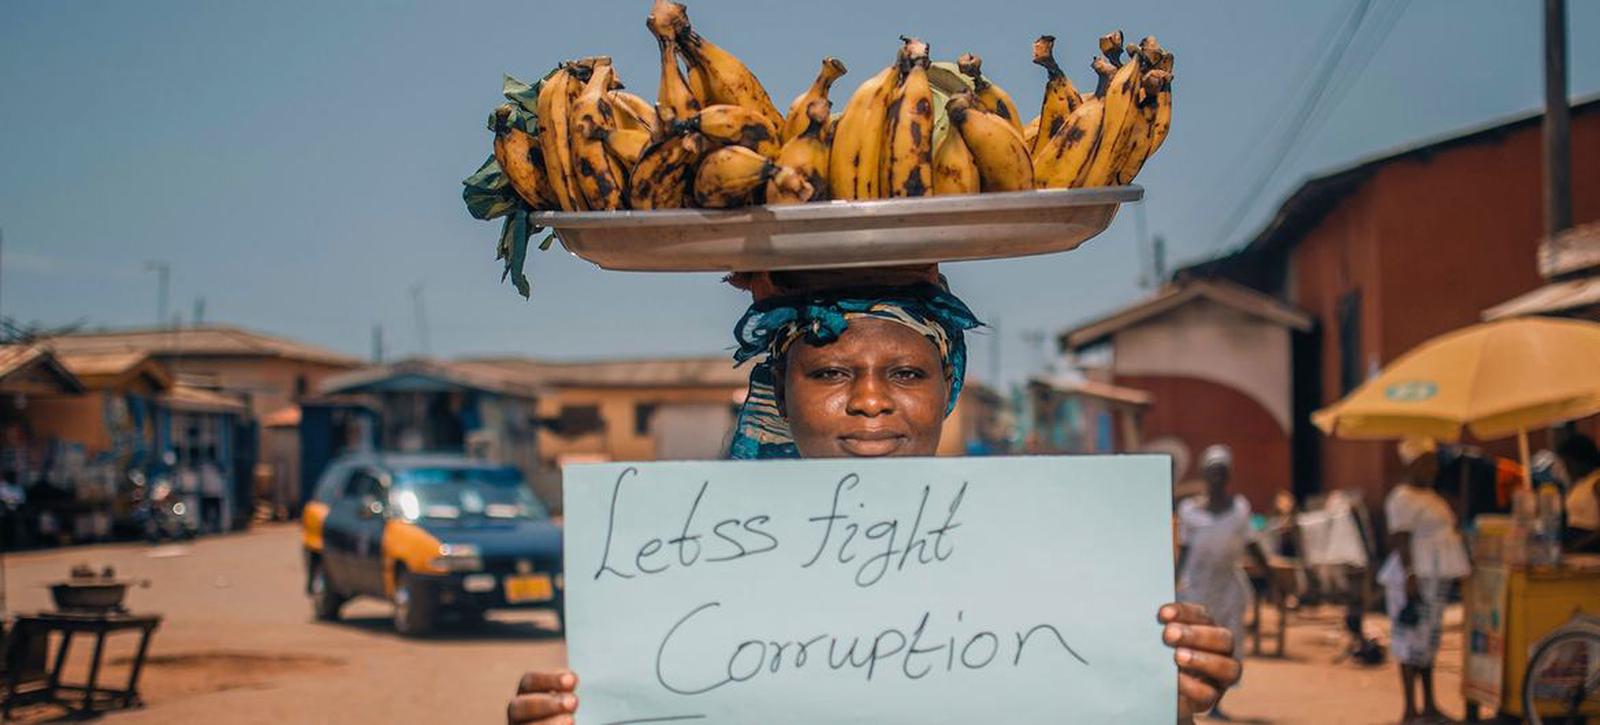 Letss fight
Corruption